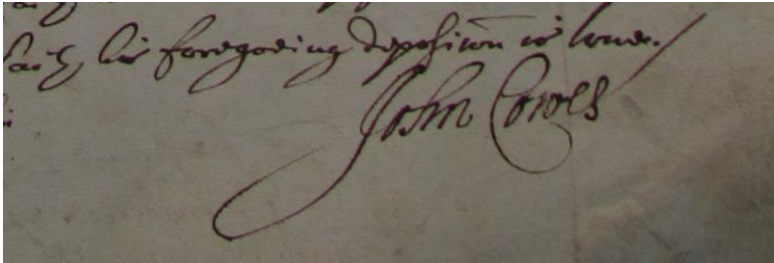 saith his foregoeing deposicon is true./
John Cowes